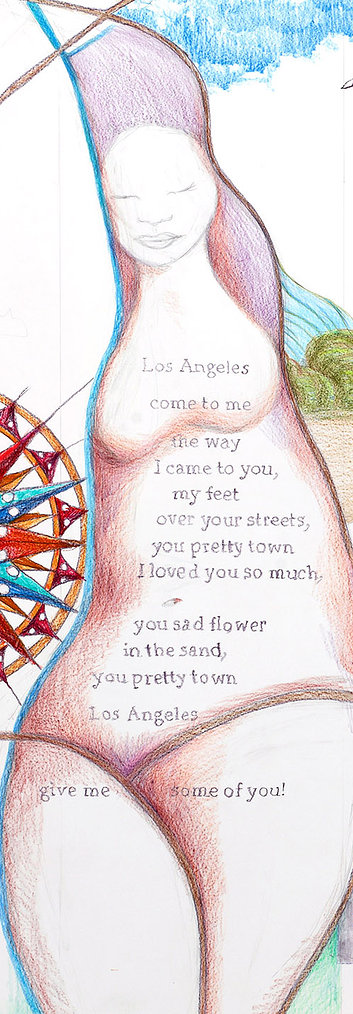 Los Angeles
come to me
the way
I came to you,
my feet
over your streets,
you pretty town
I loved you so much,
you sad flower
in the sand,
you pretty town
Los Angeles
give me some of you!